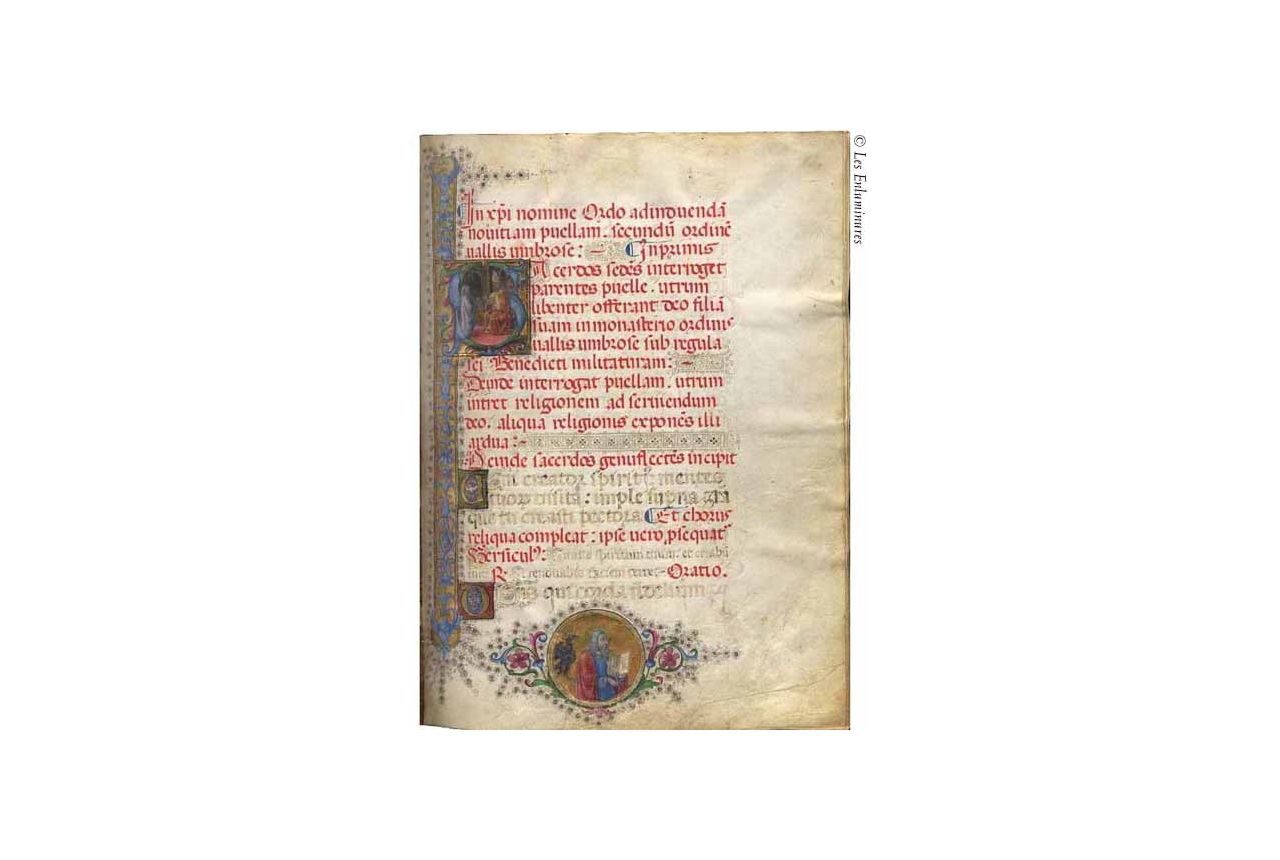 In xp̄i nomine Ordo ad induendā
novitiam puellam. secundū ordinē
uallis umbrose: Inprimis
Sacerdos sedēs interroget
parentes puelle. utrum
libenter offerant deo filiā
suam in monasterio ordinis
uallis umbrose sub regula
sc̄i Benedicti militaturam:
Deinde interrogat puellam. utrum
intret religionem ad seruiendum
deo. aliqua religionis exponēs illi
ardua:
Deinde sacerdos genuflectēs incipit
Ueni creator spiritꝰ mentes
tuorꝫ uisita: imple supna gra
que tu creasti pectora Et chorus
reliqua compleat: ipse uero ꝓsequat
Versicul':
R renouabis faciem terre. Oratio.
Deus qui corda fidelium
© Les Enluminures